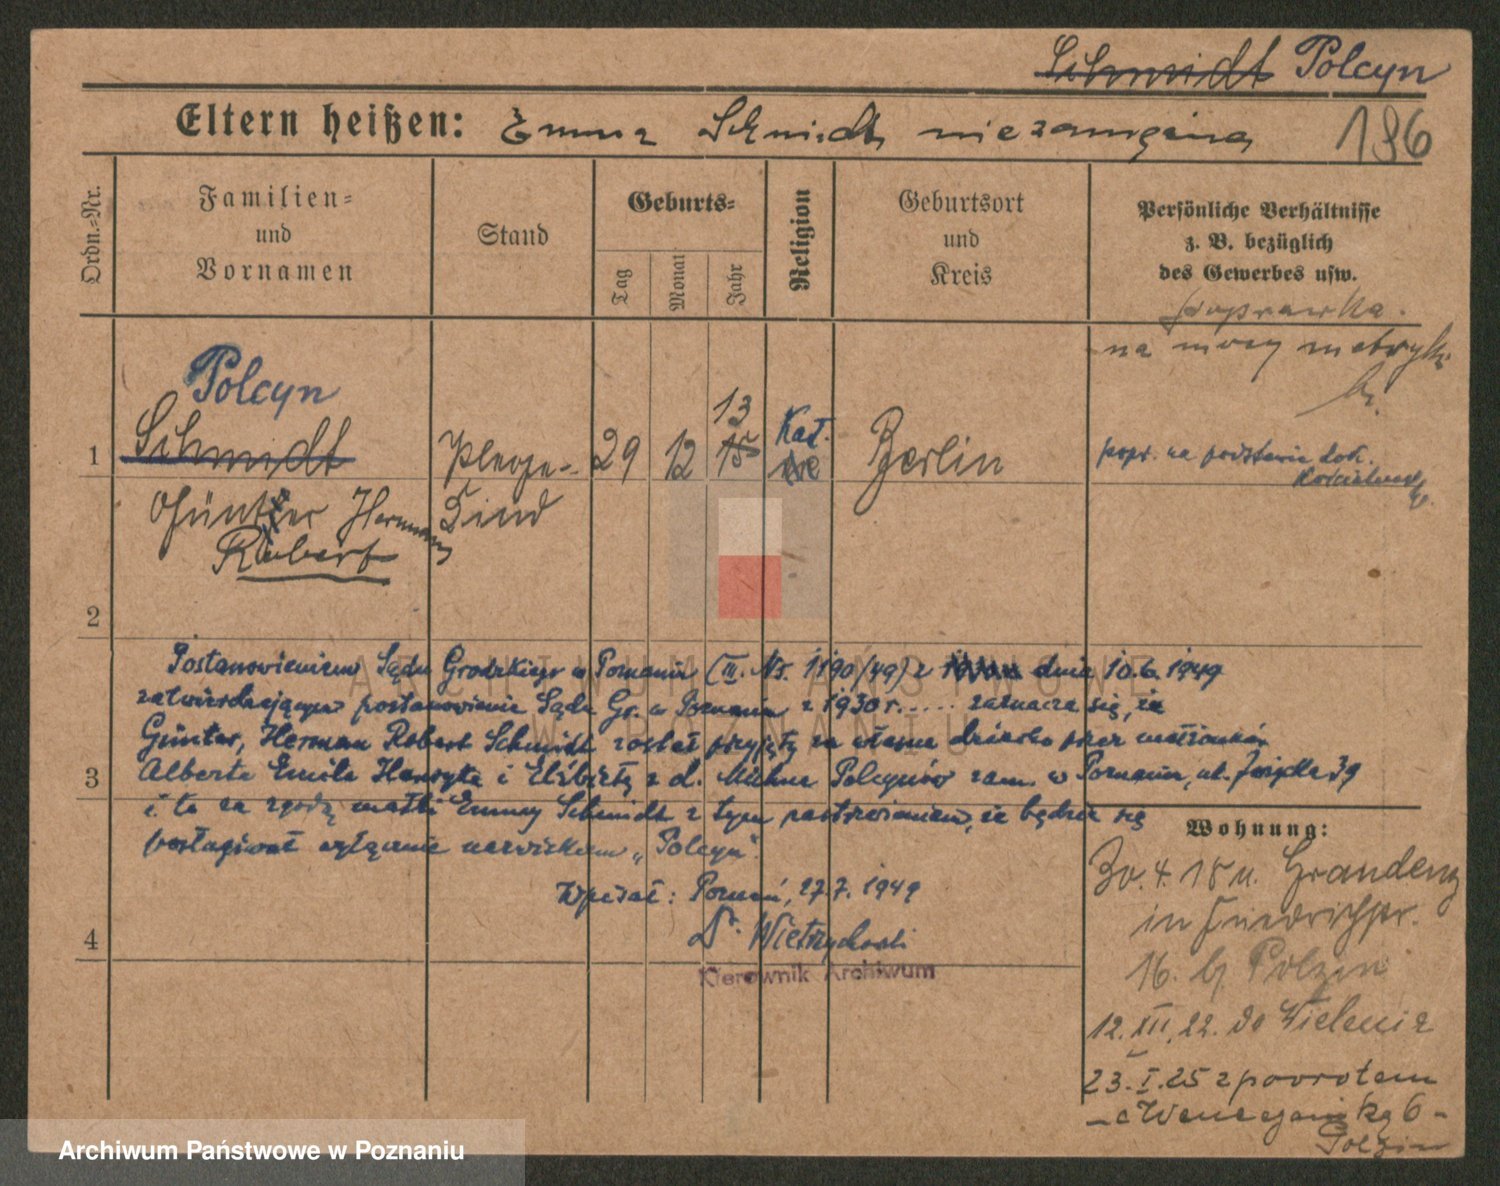 Schmidt Polcyn
Eltern heißen: Emma Schmidt niezamężna
186
Ordn.-Nr.
Familien-
und
Vornamen
Stand
Geburts-
Tag
Monat
Jahr
Religion
Geburtsort
und
Kreis
Persönliche Verhältnisse
z. B. bezüglich
des Gewerbes usw.
poprawka
na mocy metryki
Polcyn
13
1 Schmidt Pflege- 29 12 15 Kat. Berlin
popr. na podstawie dok.
Günter Herman Kind
Robert
2
Postanowieniem Sądu Grodzkiego w Poznaniu (III. Ns. 1190/49) z dnia 10.6.1949
zatwierdzającym postanowienie Sądu Gr. w Poznaniu z 1930 r. ..... zaznacza się, że
Günter, Herman Robert Schmidt został przyjęty za własne dziecko przez małżonków
3 Alberta Emila Henryka i Elżbietę z d. Polcynów zam. w Poznaniu, ul. 39
i to za zgodą matki Emmy Schmidt z tym postanowieniem, że będzie się
posługiwać wyłącznie nazwiskiem „Polcyn”.
Wpisał: Poznań, 27.7.1949
4
Kierownik Archiwum
Wohnung:
Zv. 4. 18 u. Graudenz
in Friedrichstr.
16. b/ Polzin
12. XII. 22. do Wielenia
23. I. 25 z powrotem
6-
Polzin
ARCHIWUM PAŃSTWOWE
W POZNANIU
Archiwum Państwowe w Poznaniu